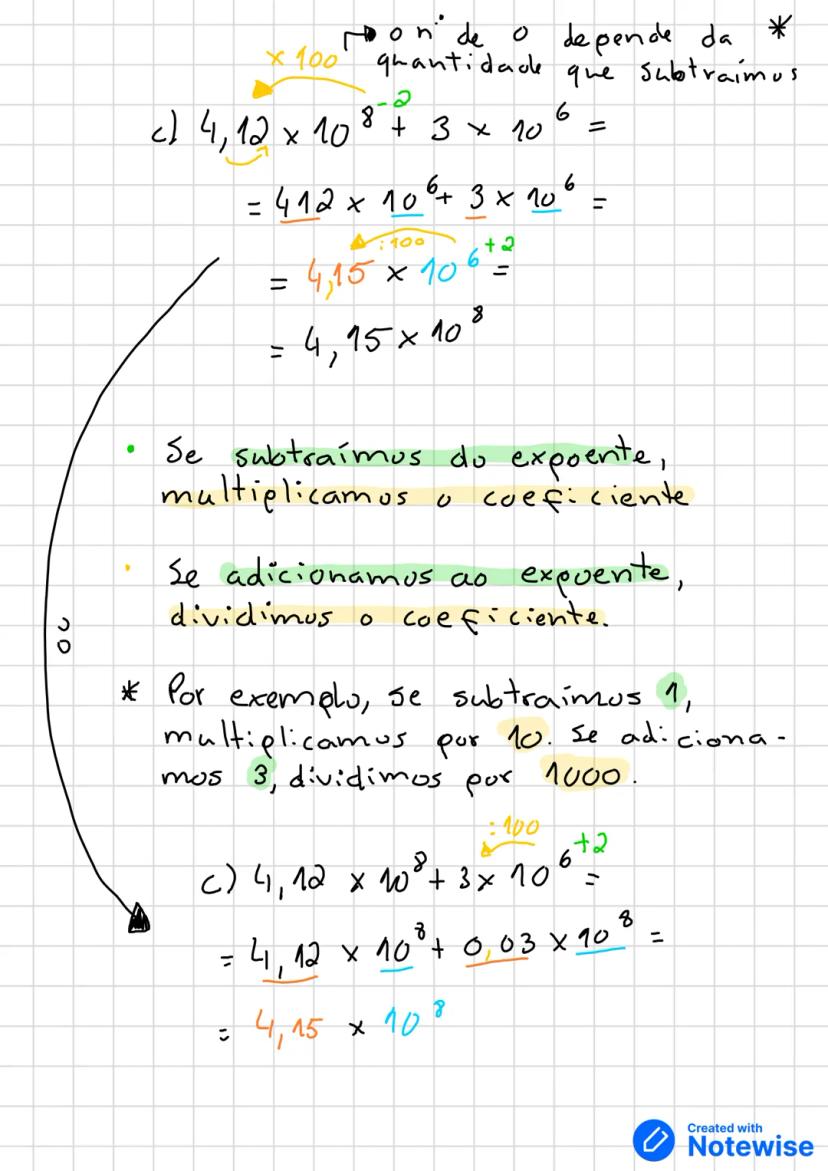 → o nº de 0 depende da *
x 100 quantidade que subtraímos
c) 4,12 x 10⁸⁻² + 3 x 10⁶ =
= 412 x 10⁶ + 3 x 10⁶ =
:100
= 4,15 x 10⁶⁺² =
= 4,15 x 10⁸
• Se subtraímos do expoente,
multiplicamos o coeficiente
• Se adicionamos ao expoente,
dividimos o coeficiente.
ou
* Por exemplo, se subtraímos 1,
multiplicamos por 10. Se adiciona-
mos 3, dividimos por 1000.
:100
c) 4,12 x 10⁸ + 3 x 10⁶⁺² =
= 4,12 x 10⁸ + 0,03 x 10⁸ =
= 4,15 x 10⁸
Created with
Notewise